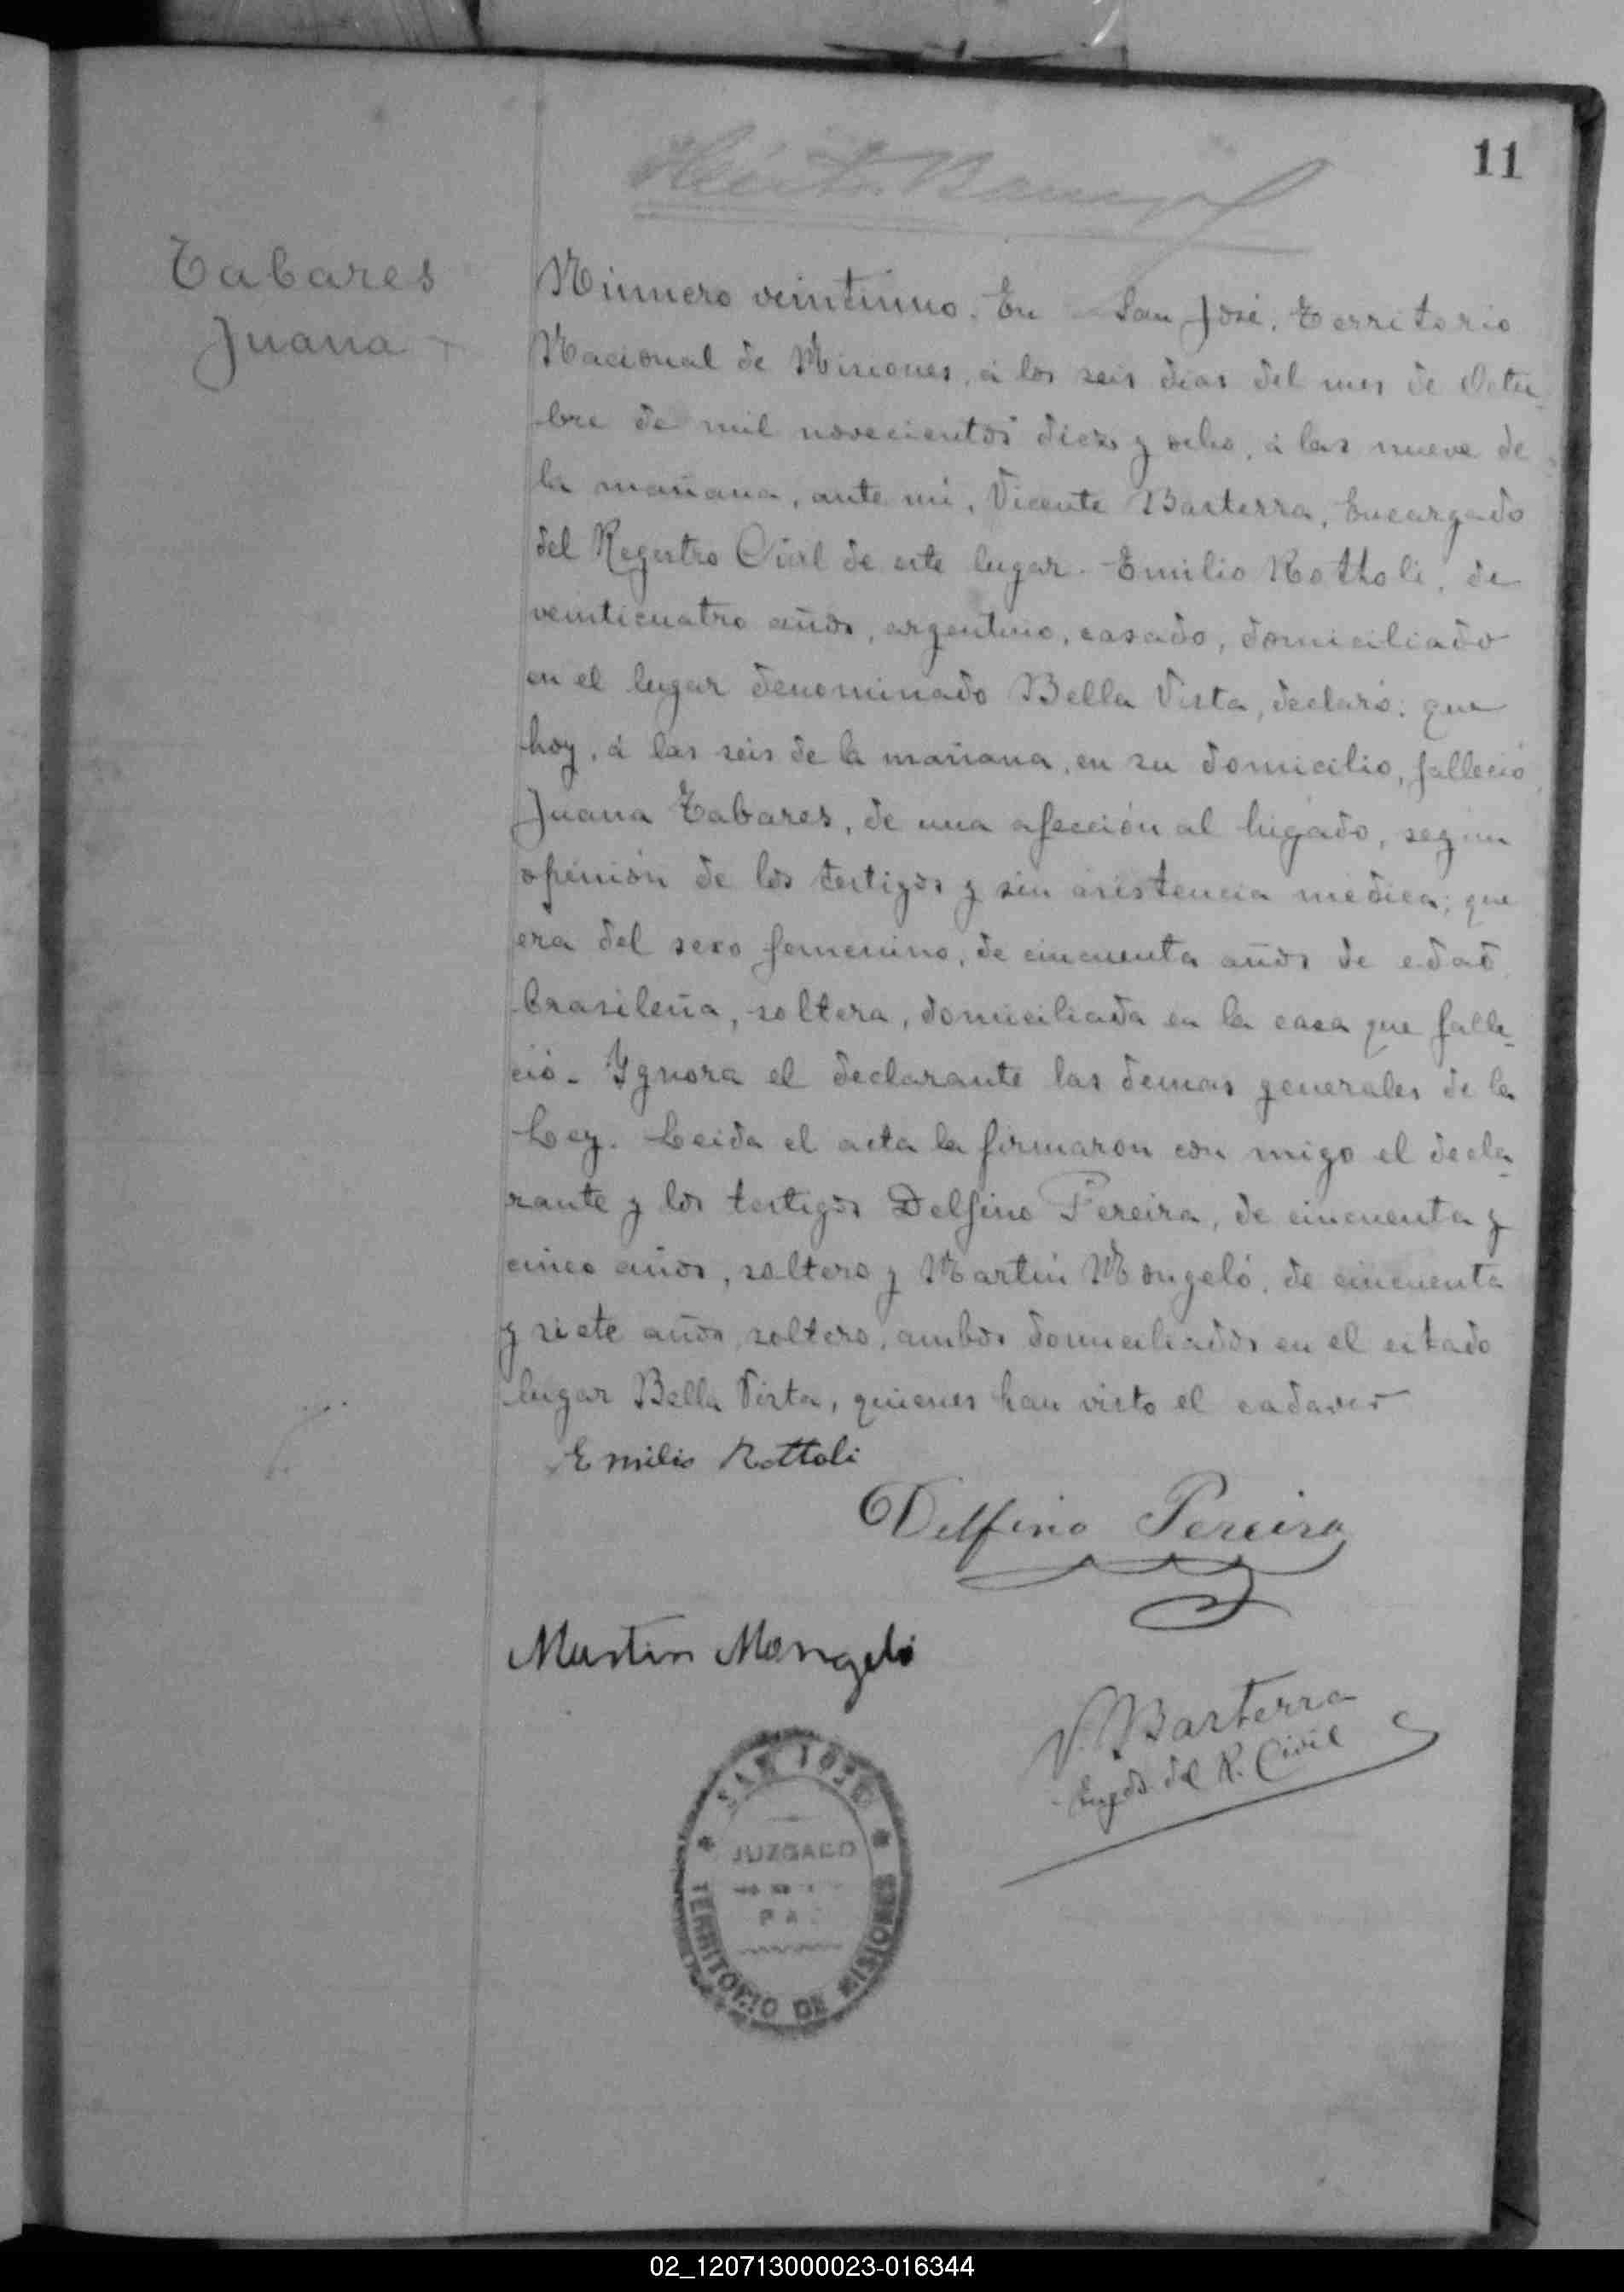 11
Tabares
Juana
Número veintiuno. En San José, Territorio
Nacional de Misiones, á los seis dias del mes de Octu-
bre de mil novecientos diez y ocho, á las nueve de
la mañana, ante mi, Vicente Basterra, Encargado
del Registro Civil de este lugar. Emilio Rottoli, de
veinticuatro años, argentino, casado, domiciliado
en el lugar denominado Bella Vista, declaró: que
hoy, á las seis de la mañana, en su domicilio, falleció
Juana Tabares, de una afección al higado, segun
opinión de los testigos y sin asistencia médica; que
era del sexo femenino, de cincuenta años de edad
brasileña, soltera, domiciliada en la casa que falle-
ció. Ygnora el declarante las demas generales de la
Ley. Leida el acta la firmaron con migo el decla-
rante y los testigos Delfino Pereira, de cincuenta y
cinco años, soltero y Martin Mongeló, de cincuenta
y siete años, soltero, ambos domiciliados en el citado
lugar Bella Vista, quienes han visto el cadaver
Emilio Rottoli
Delfino Pereira
Martin Mongeló
V. Basterra
Engdo del R. Civil
SAN JOSE
JUZGADO
TERRITORIO DE MISIONES
02_120713000023-016344